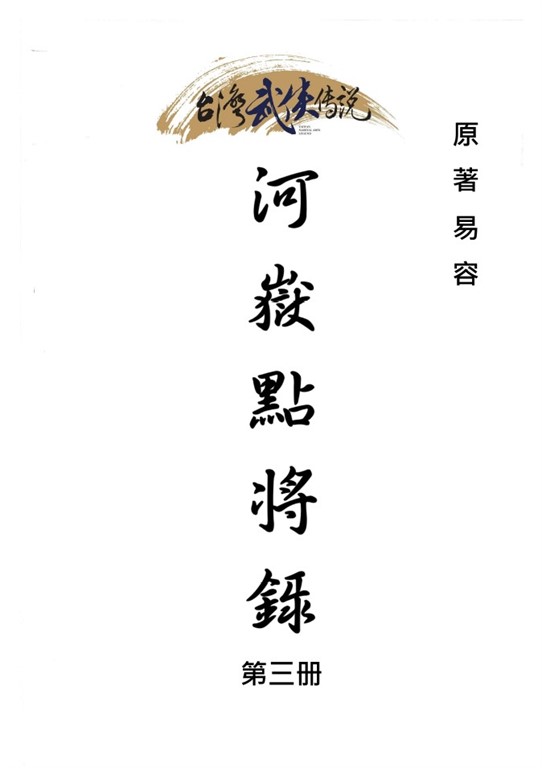 台灣武俠傳說
原著易容
河嶽點將錄
第三册